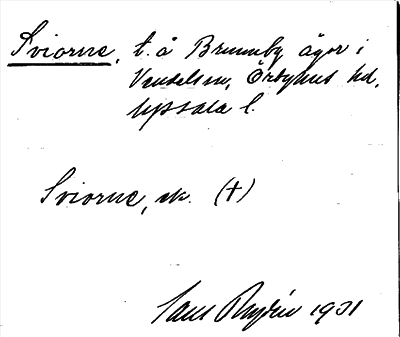 Sviorne, t. å Brunnby ägor i
Vendels sn, Örbyhus hd,
Uppsala l.
Sviorne, sk. (†)
Rydén 1931